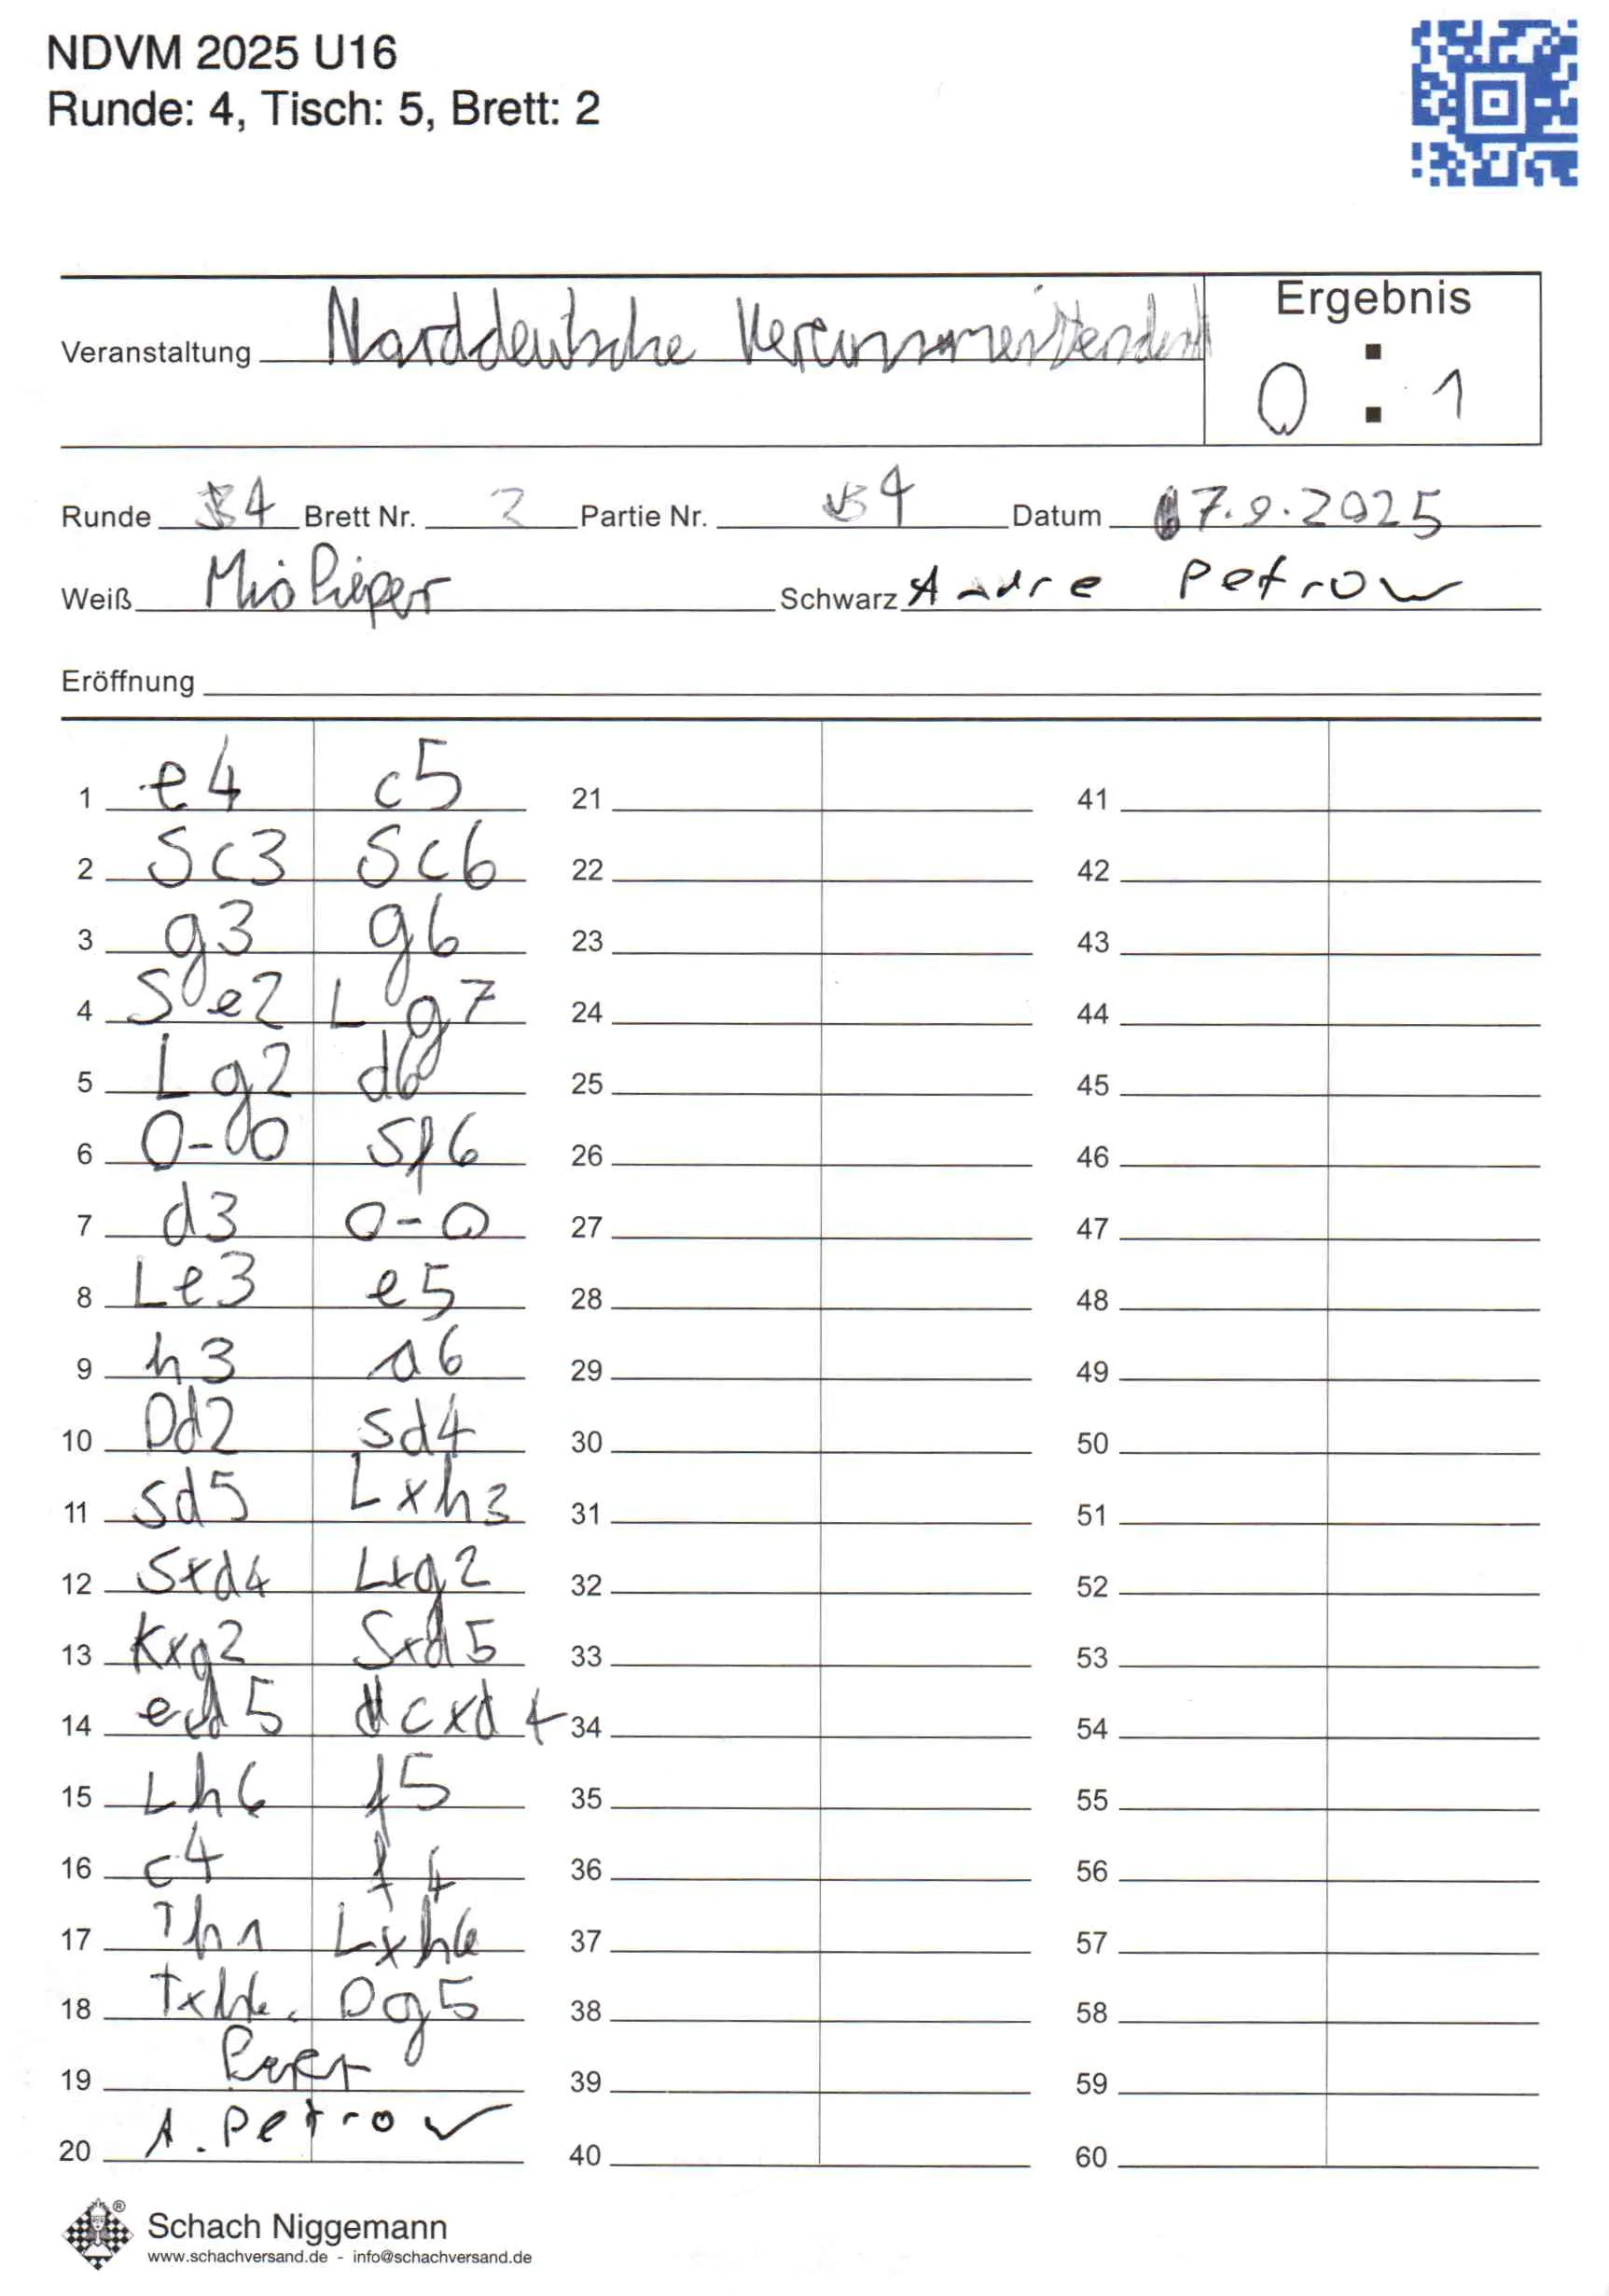 NDVM 2025 U16
Runde: 4, Tisch: 5, Brett: 2
Veranstaltung Narddeutsche Ergebnis
0 : 1
Runde 4 Brett Nr. 2 Partie Nr. 4 Datum 07.9.2025
Weiß Mio Pieper Schwarz Andre Petrow
Eröffnung
1 e4 c5 21 41
2 Sc3 Sc6 22 42
3 g3 g6 23 43
4 Se2 Lg7 24 44
5 Lg2 d6 25 45
6 0-0 Sf6 26 46
7 d3 0-0 27 47
8 Le3 e5 28 48
9 h3 a6 29 49
10 Dd2 Sd4 30 50
11 Sd5 Lxh3 31 51
12 Sxd4 Lxg2 32 52
13 Kxg2 Sxd5 33 53
14 exd5 cxd4 34 54
15 Lh6 f5 35 55
16 c4 f4 36 56
17 Th1 Lxh6 37 57
18 Txh6 Dg5 38 58
19 39 59
20 A. Petrow 40 60
Schach Niggemann
www.schachversand.de - info@schachversand.de